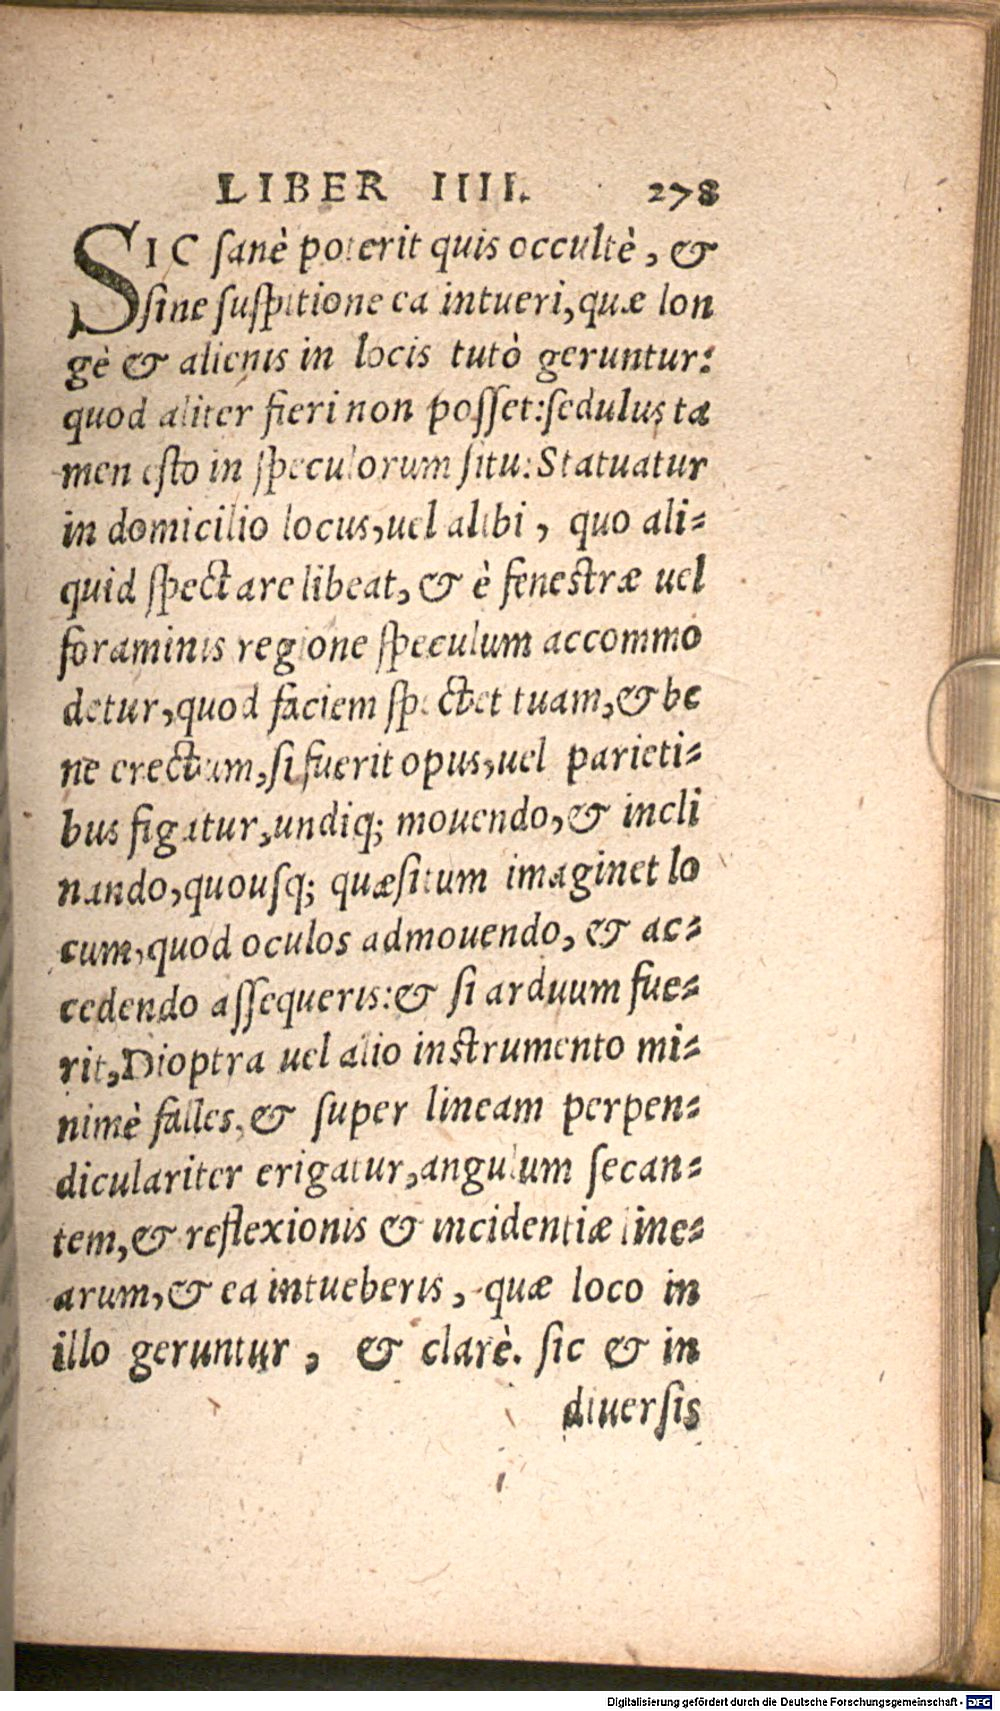 LIBER IIII. 278
SIC sanè poterit quis occultè, &
sine suspitione ea intueri, quæ lon
gè & alienis in locis tutò geruntur:
quod aliter fieri non posset: sedulus ta
men esto in speculorum situ: Statuatur
in domicilio locus, uel alibi, quo ali-
quid spectare libeat, & è fenestræ uel
foraminis regione speculum accommo
detur, quod faciem spectet tuam, & be
ne erectum, si fuerit opus, uel parieti-
bus figatur, undiq; mouendo, & incli
nando, quousq; quæsitum imaginet lo
cum, quod oculos admouendo, & ac-
cedendo assequeris: & si arduum fue-
rit, Dioptra uel alio instrumento mi-
nimè falles, & super lineam perpen-
diculariter erigatur, angulum secan-
tem, & reflexionis & incidentiæ line-
arum, & ea intueberis, quæ loco in
illo geruntur, & clarè. sic & in
diuersis
Digitalisierung gefördert durch die Deutsche Forschungsgemeinschaft - DFG